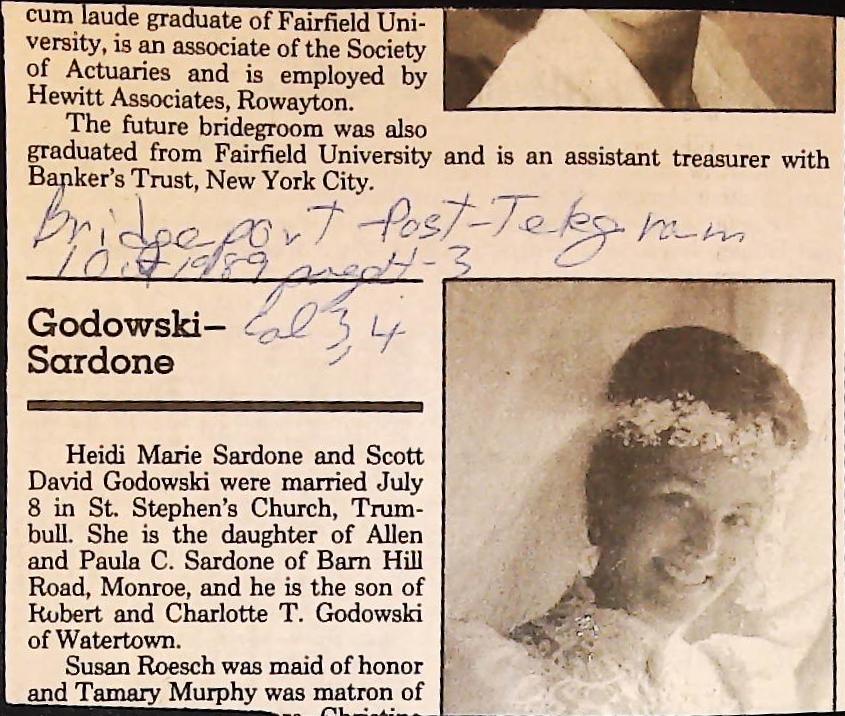 cum laude graduate of Fairfield Uni-
versity, is an associate of the Society
of Actuaries and is employed by
Hewitt Associates, Rowayton.
The future bridegroom was also
graduated from Fairfield University and is an assistant treasurer with
Banker's Trust, New York City.
Bridgeport Post-Telegram
1989
Col 3, 4
Godowski–
Sardone
Heidi Marie Sardone and Scott
David Godowski were married July
8 in St. Stephen's Church, Trum-
bull. She is the daughter of Allen
and Paula C. Sardone of Barn Hill
Road, Monroe, and he is the son of
Robert and Charlotte T. Godowski
of Watertown.
Susan Roesch was maid of honor
and Tamary Murphy was matron of